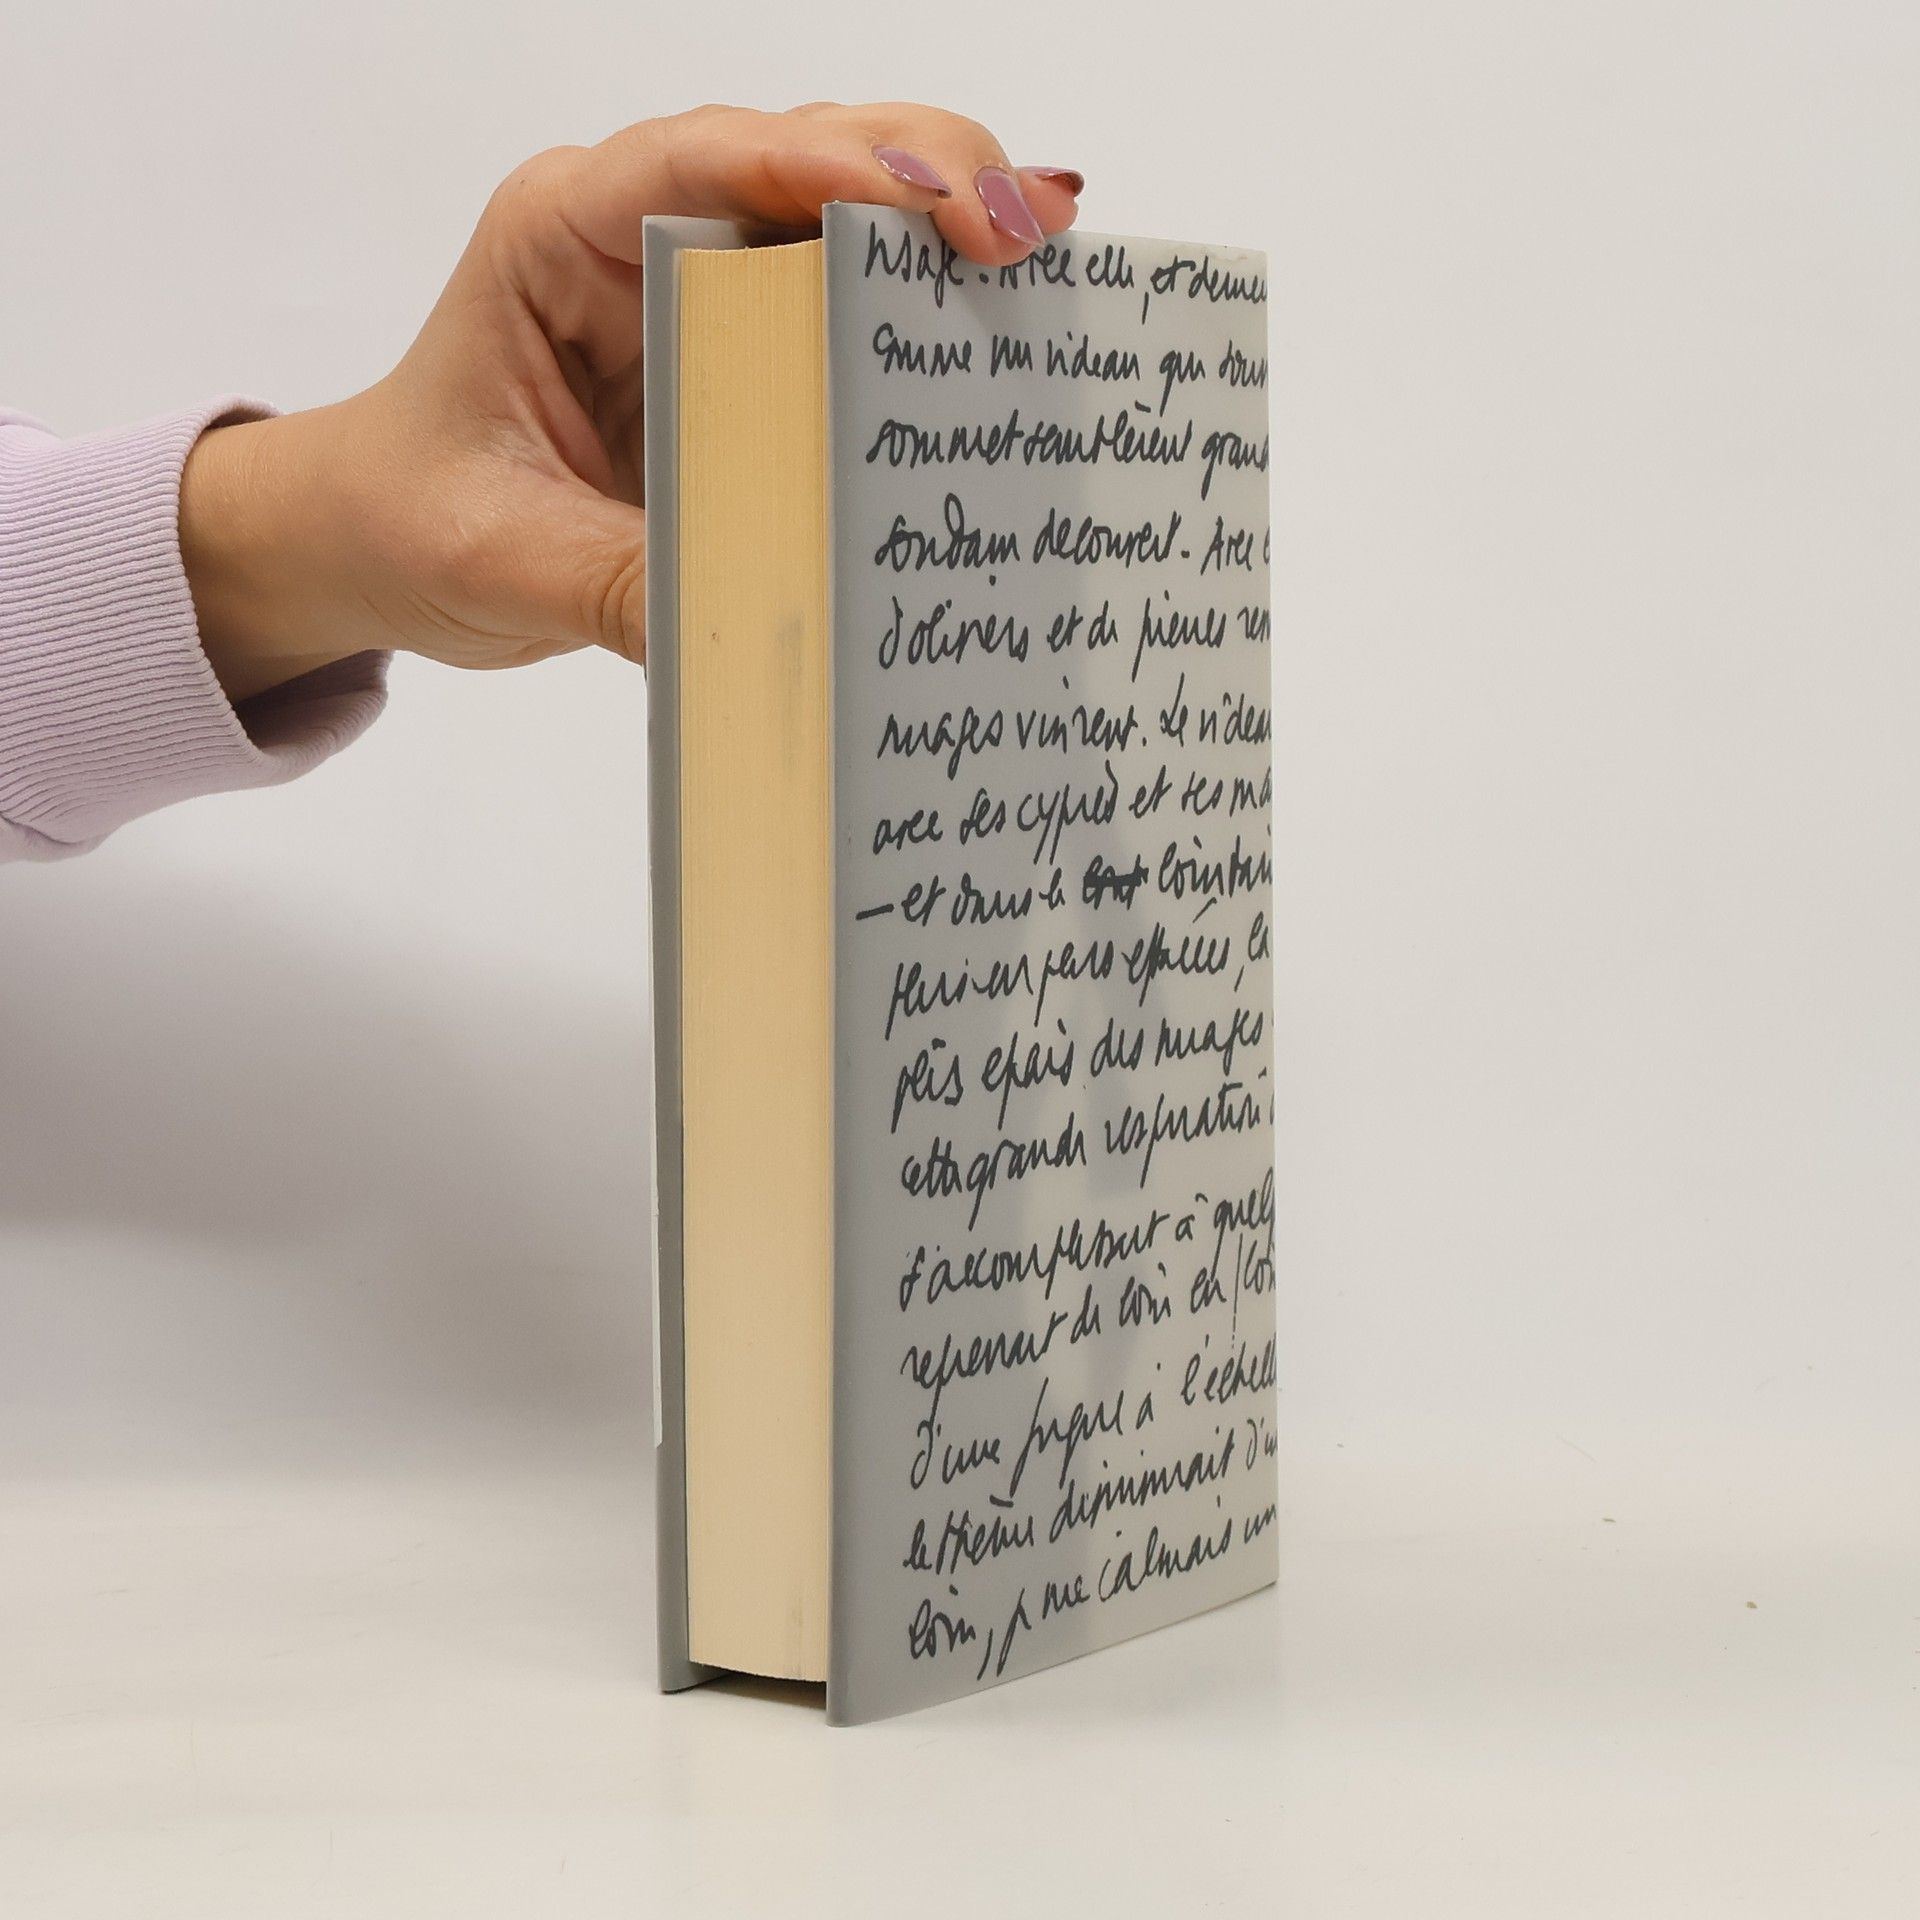 Avec elle, et derrie
comme un rideau qui s'ouv
sommet semblèrent grand
soudain découvert. Avec
d'oliviers et de pierres ren
nuages vinrent. Le rideau
avec ses cyprès et ses
— et dans le lointain
plus en plus espacées, la
plis épais des nuages
cette grande respiration
s'accomplissait à quelq
reprenait de loin en loin
d'une fugue à l'échelle
le thème diminuait d'u
loin, je me calmais un